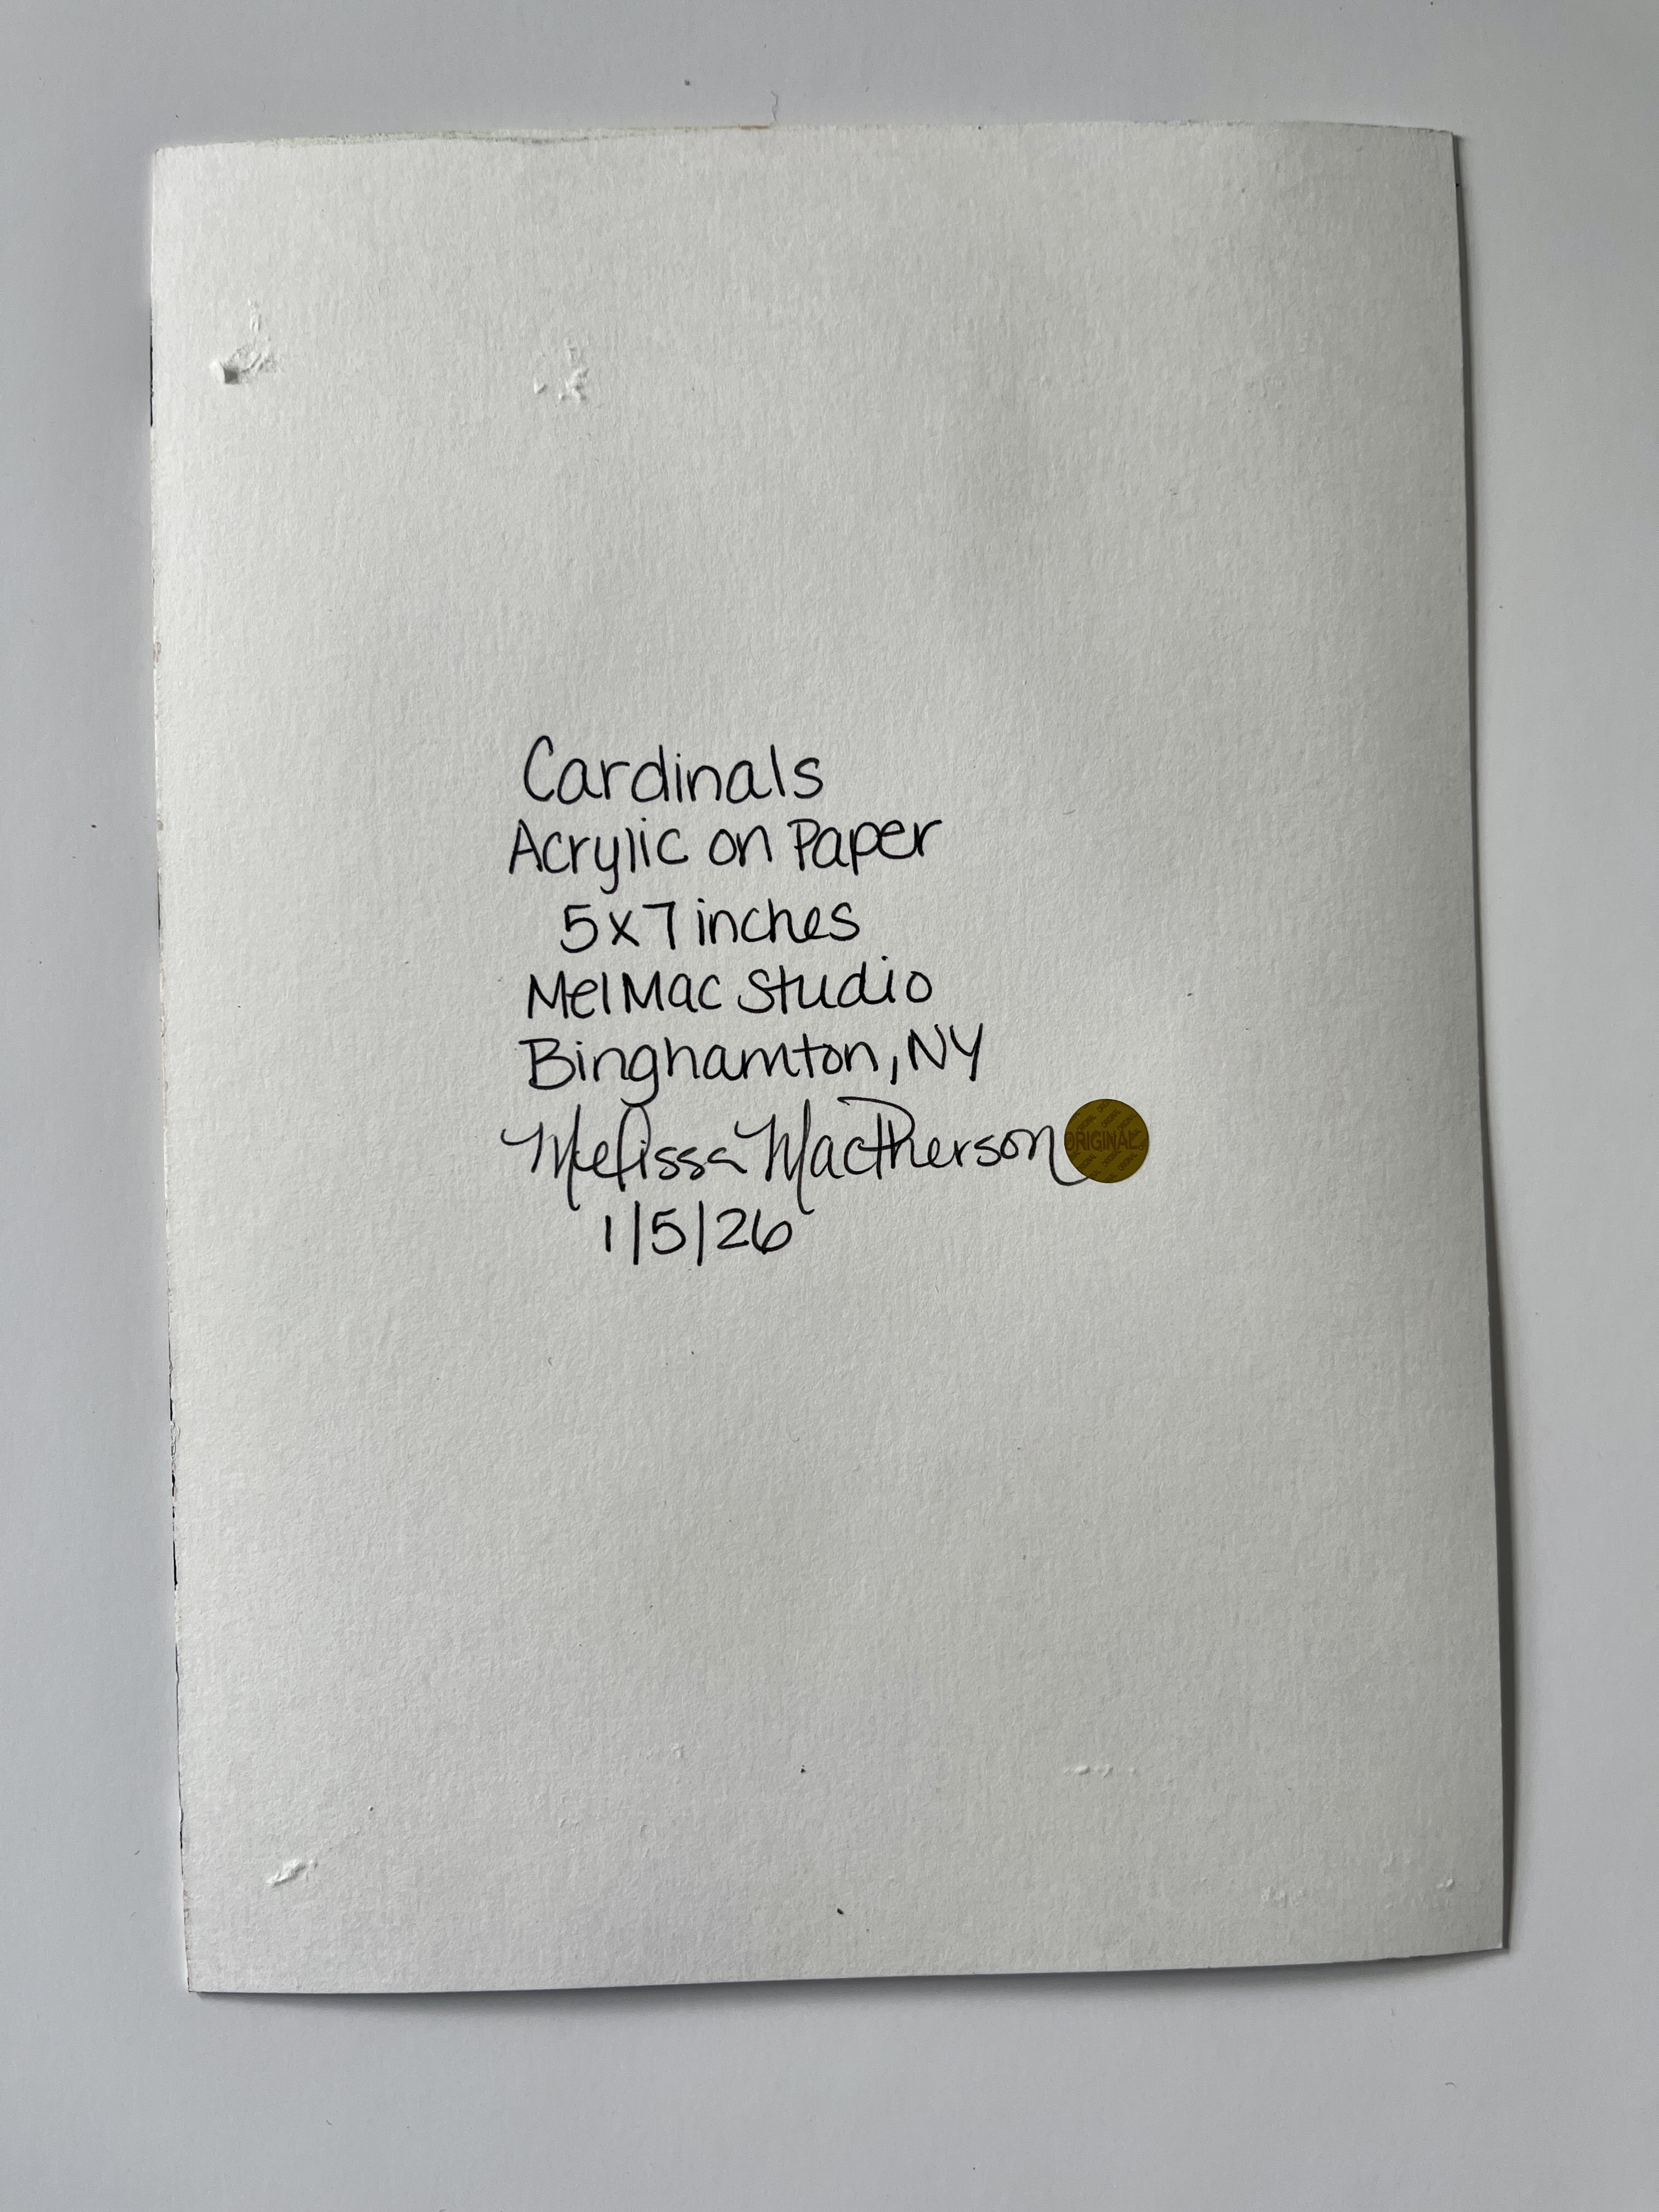 Cardinals
Acrylic on Paper
5x7 inches
MelMac Studio
Binghamton, NY
Melissa MacPherson
ORIGINAL
1/5/26